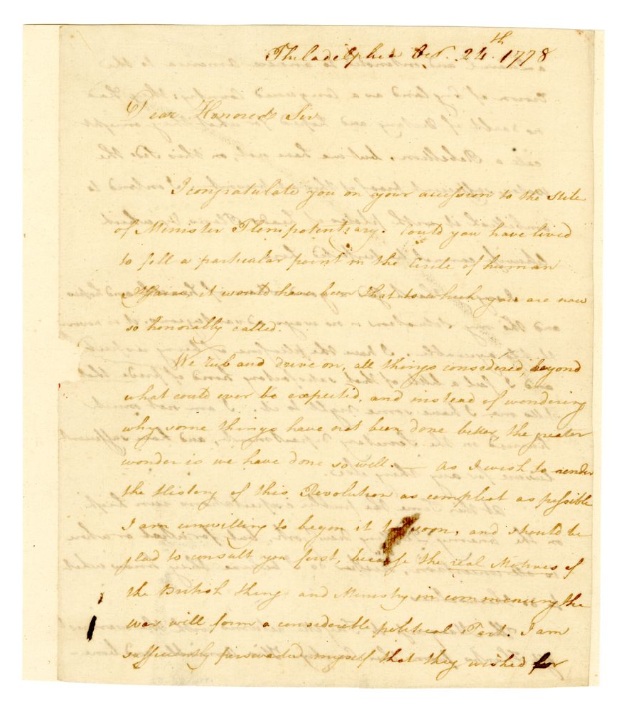 Philadelphia Oct. 24th. 1778
Dear Honoured Sir,
I congratulate you on your accession to the State
of Minister Plenipotentiary. Could you have lived
to fill a particular point in the circle of human
Affairs, it would have been that to which you are now
so honorably called.
We rub and drive on, all things considered, beyond
what could ever be expected, and instead of wondering
why some things have not been done better, the greater
wonder is we have done so well. — As I wish to render
the History of this Revolution as compleat as possible
I am unwilling to begin it too soon, and should be
glad to consult you first, because the real Motives of
the British King and Ministry in commencing the
war will form a considerable political Part. I am
sufficiently persuaded myself that they wished for